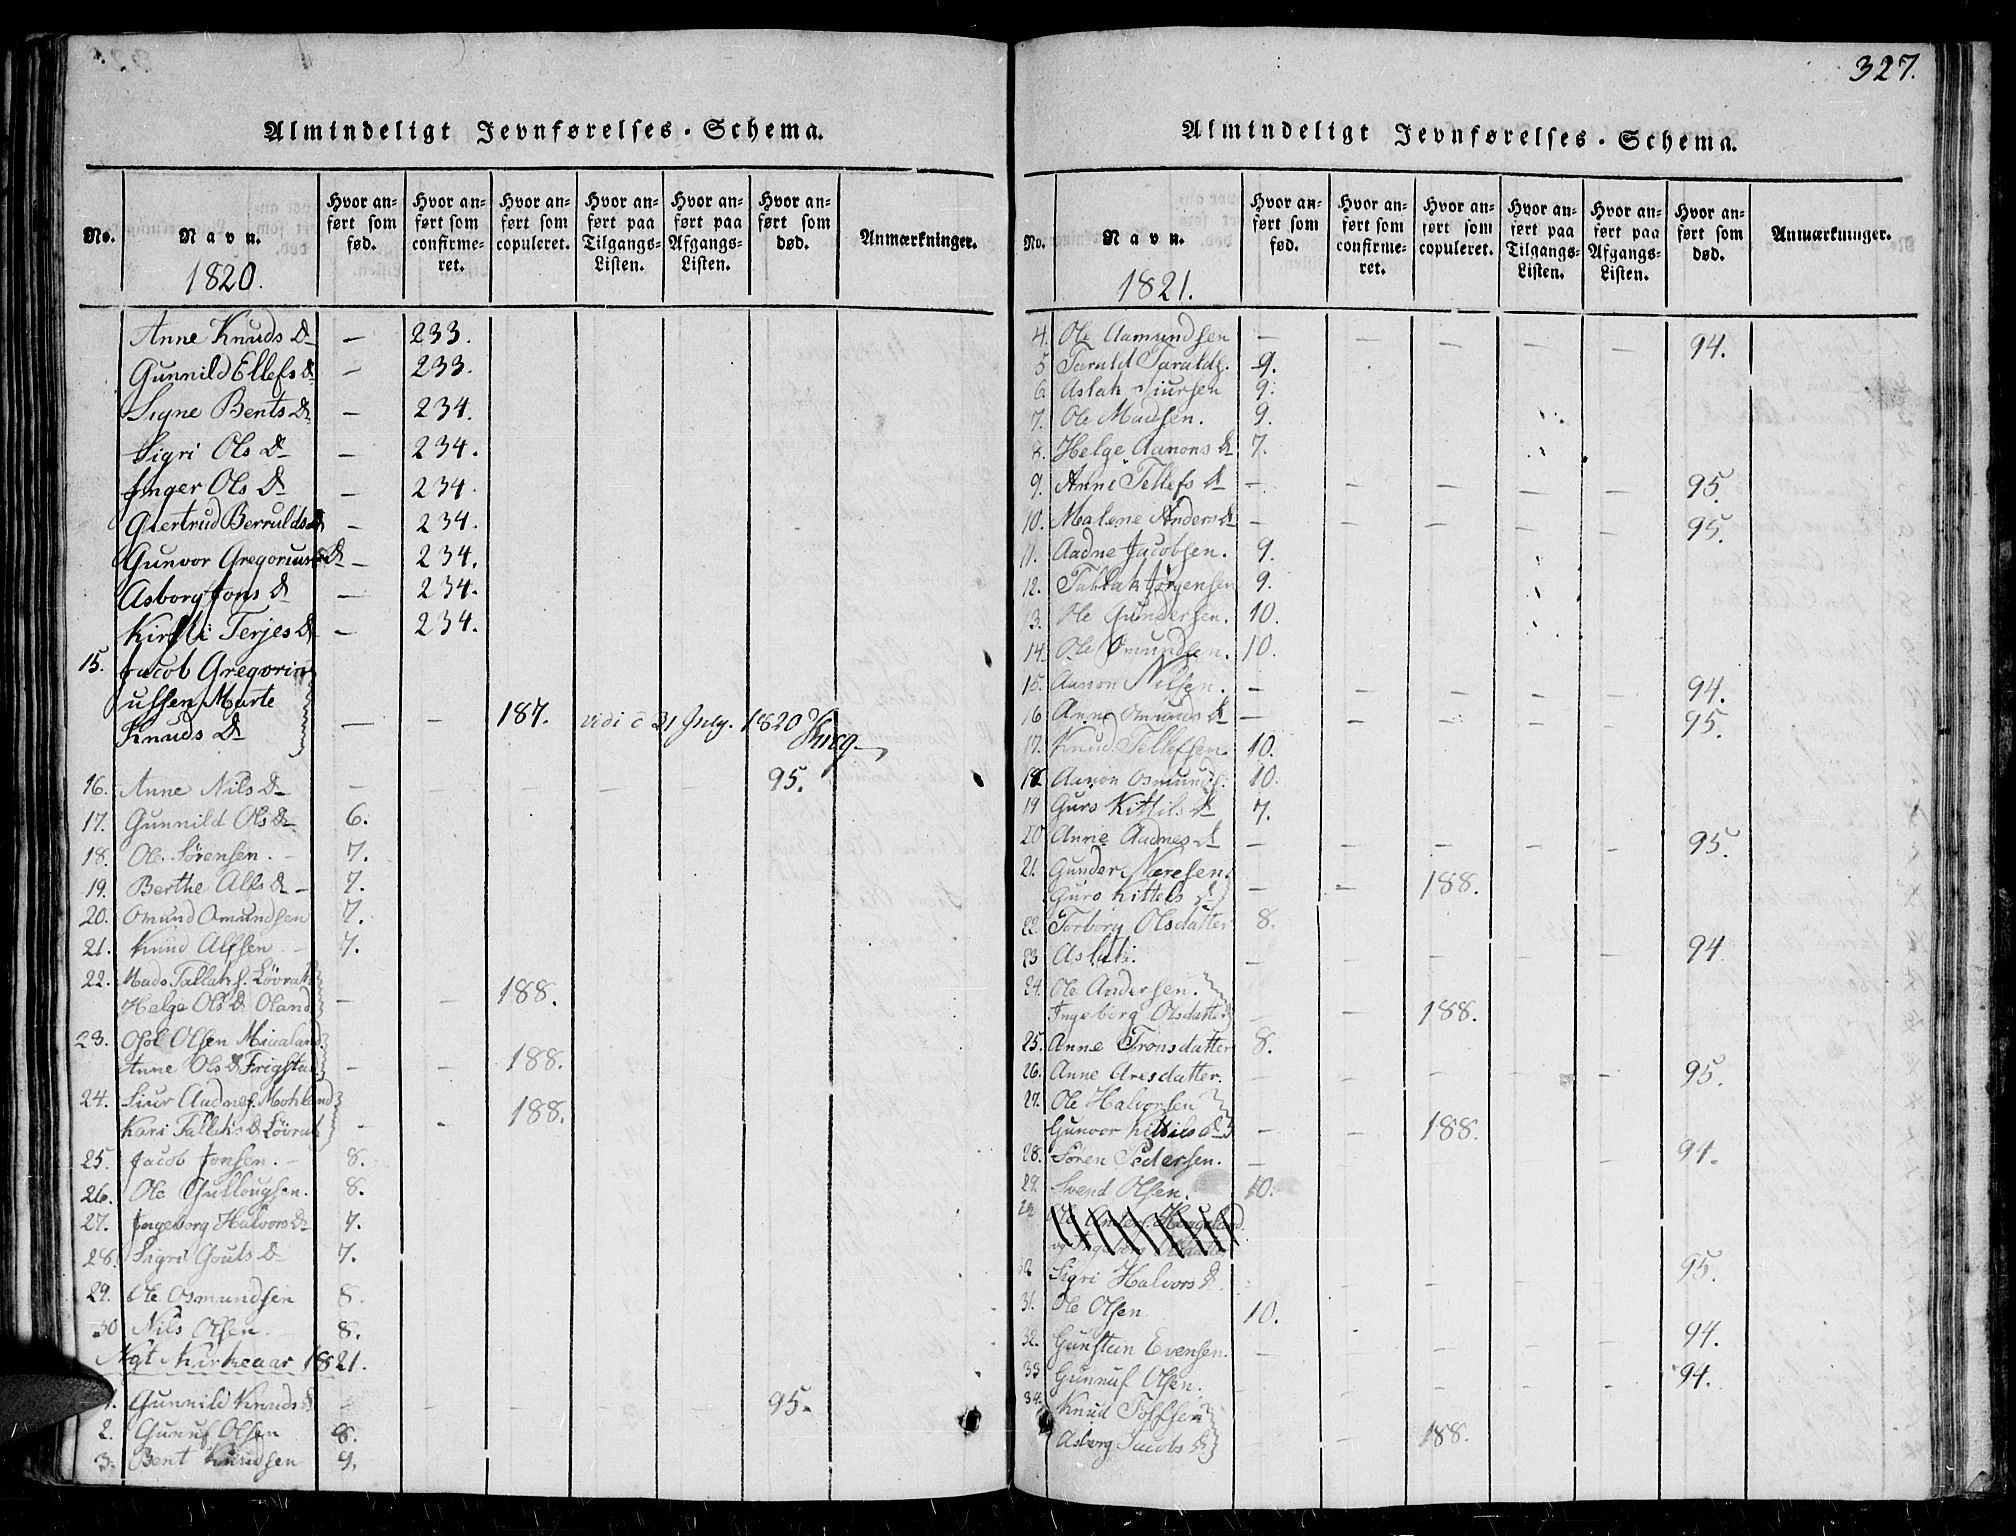 Almindeligt Jevnførelses-Schema.
No.
Navn.
1820.
Hvor anført som fød.
Hvor anført som confirmeret.
Hvor anført som copuleret.
Hvor anført paa Tilgangs-Listen.
Hvor anført paa Afgangs-Listen.
Hvor anført som død.
Anmærkninger.
Anne Knuds D — 233.
Gunnild Ellefs D — 233.
Signe Bents D — 234.
Sigri Ols D — 234.
Inger Ols D — 234.
Giertrud Berrulds D — 234.
Gunvor Gregorius D — 234.
Asborg Jons D — 234.
Kirsti Terjes D — 234.
15. Jacob Gregori
ussen Marte
Knuds D — — 187. vidi d 31 July. 1820
16. Anne Nils D — — — — — 95.
17. Gunnild Ols D 6.
18. Ole Sørensen. 7.
19. Berthe Alfs D 7.
20. Omund Omundsen 7.
21. Knud Alfsen 7.
22. Mads Tallaks. Lövrak
Helge Ols D Oland — — 188.
23. Olsen
Anne Ols D Frigstad — — 188.
24. Siur Aadnes. Mohland
Kari Tallaks D Lövrak — — 188.
25. Jacob Jonsen. 8.
26. Ole Gullougsen. 8.
27. Ingeborg Halvors D 7.
28. Sigri Gouts D 7.
29. Ole Osmundsen 8.
30 Nils Olsen. 8.
Nyt Kirkeaar 1821.
1. Gunnild Knuds D — — — — — 95.
2. Gunuf Olsen 8.
3. Bent Knudsen 9.
327.
Almindeligt Jevnførelses-Schema.
No.
Navn.
1821.
Hvor anført som fød.
Hvor anført som confirmeret.
Hvor anført som copuleret.
Hvor anført paa Tilgangs-Listen.
Hvor anført paa Afgangs-Listen.
Hvor anført som død.
Anmærkninger.
4. Ole Aamundsen — — — — — 94.
5 Tarald Taralds. 9.
6. Aslak Siursen 9.
7. Ole Madsen. 9.
8. Helge Aanons D 7.
9. Anne Tellefs D — — — — — 95.
10. Malene Anders D — — — — — 95.
11. Aadne Jacobsen. 9.
12. Tallak Jörgensen 9.
13. Ole Gundersen. 10.
14. Ole Omundsen. 10.
15. Aanon Nilsen. — — — — — 94.
16 Anne Omunds D — — — — — 95.
17. Knud Tellefsen. 10.
18. Aanon Osmunds. 10.
19 Guro Kittils D 7.
20 Anne Aadnes D — — — — — 95.
21. Gunder Næresen.
Guro Kittels D — — 188.
22. Torborg Olsdatter 8.
23 Aslak. — — — — — 94
24. Ole Andersen.
Ingeborg Olsdatter — — 188.
25. Anne Tronsdatter 8.
26. Anne Aresdatter. — — — — — 95.
27. Ole Halvorsen
Gunvor Kittils D — — 188.
28. Sören Pedersen. — — — — — 94.
29. Svend Olsen. 10.
Sigri Halvors D — — — — — 95.
31. Ole Olsen 10.
32. Gunsten Evensen. — — — — — 94.
33 Gunnuf Olsen. — — — — — 94.
34. Knud Tolfsen
Asborg Jacobs D — — 188.